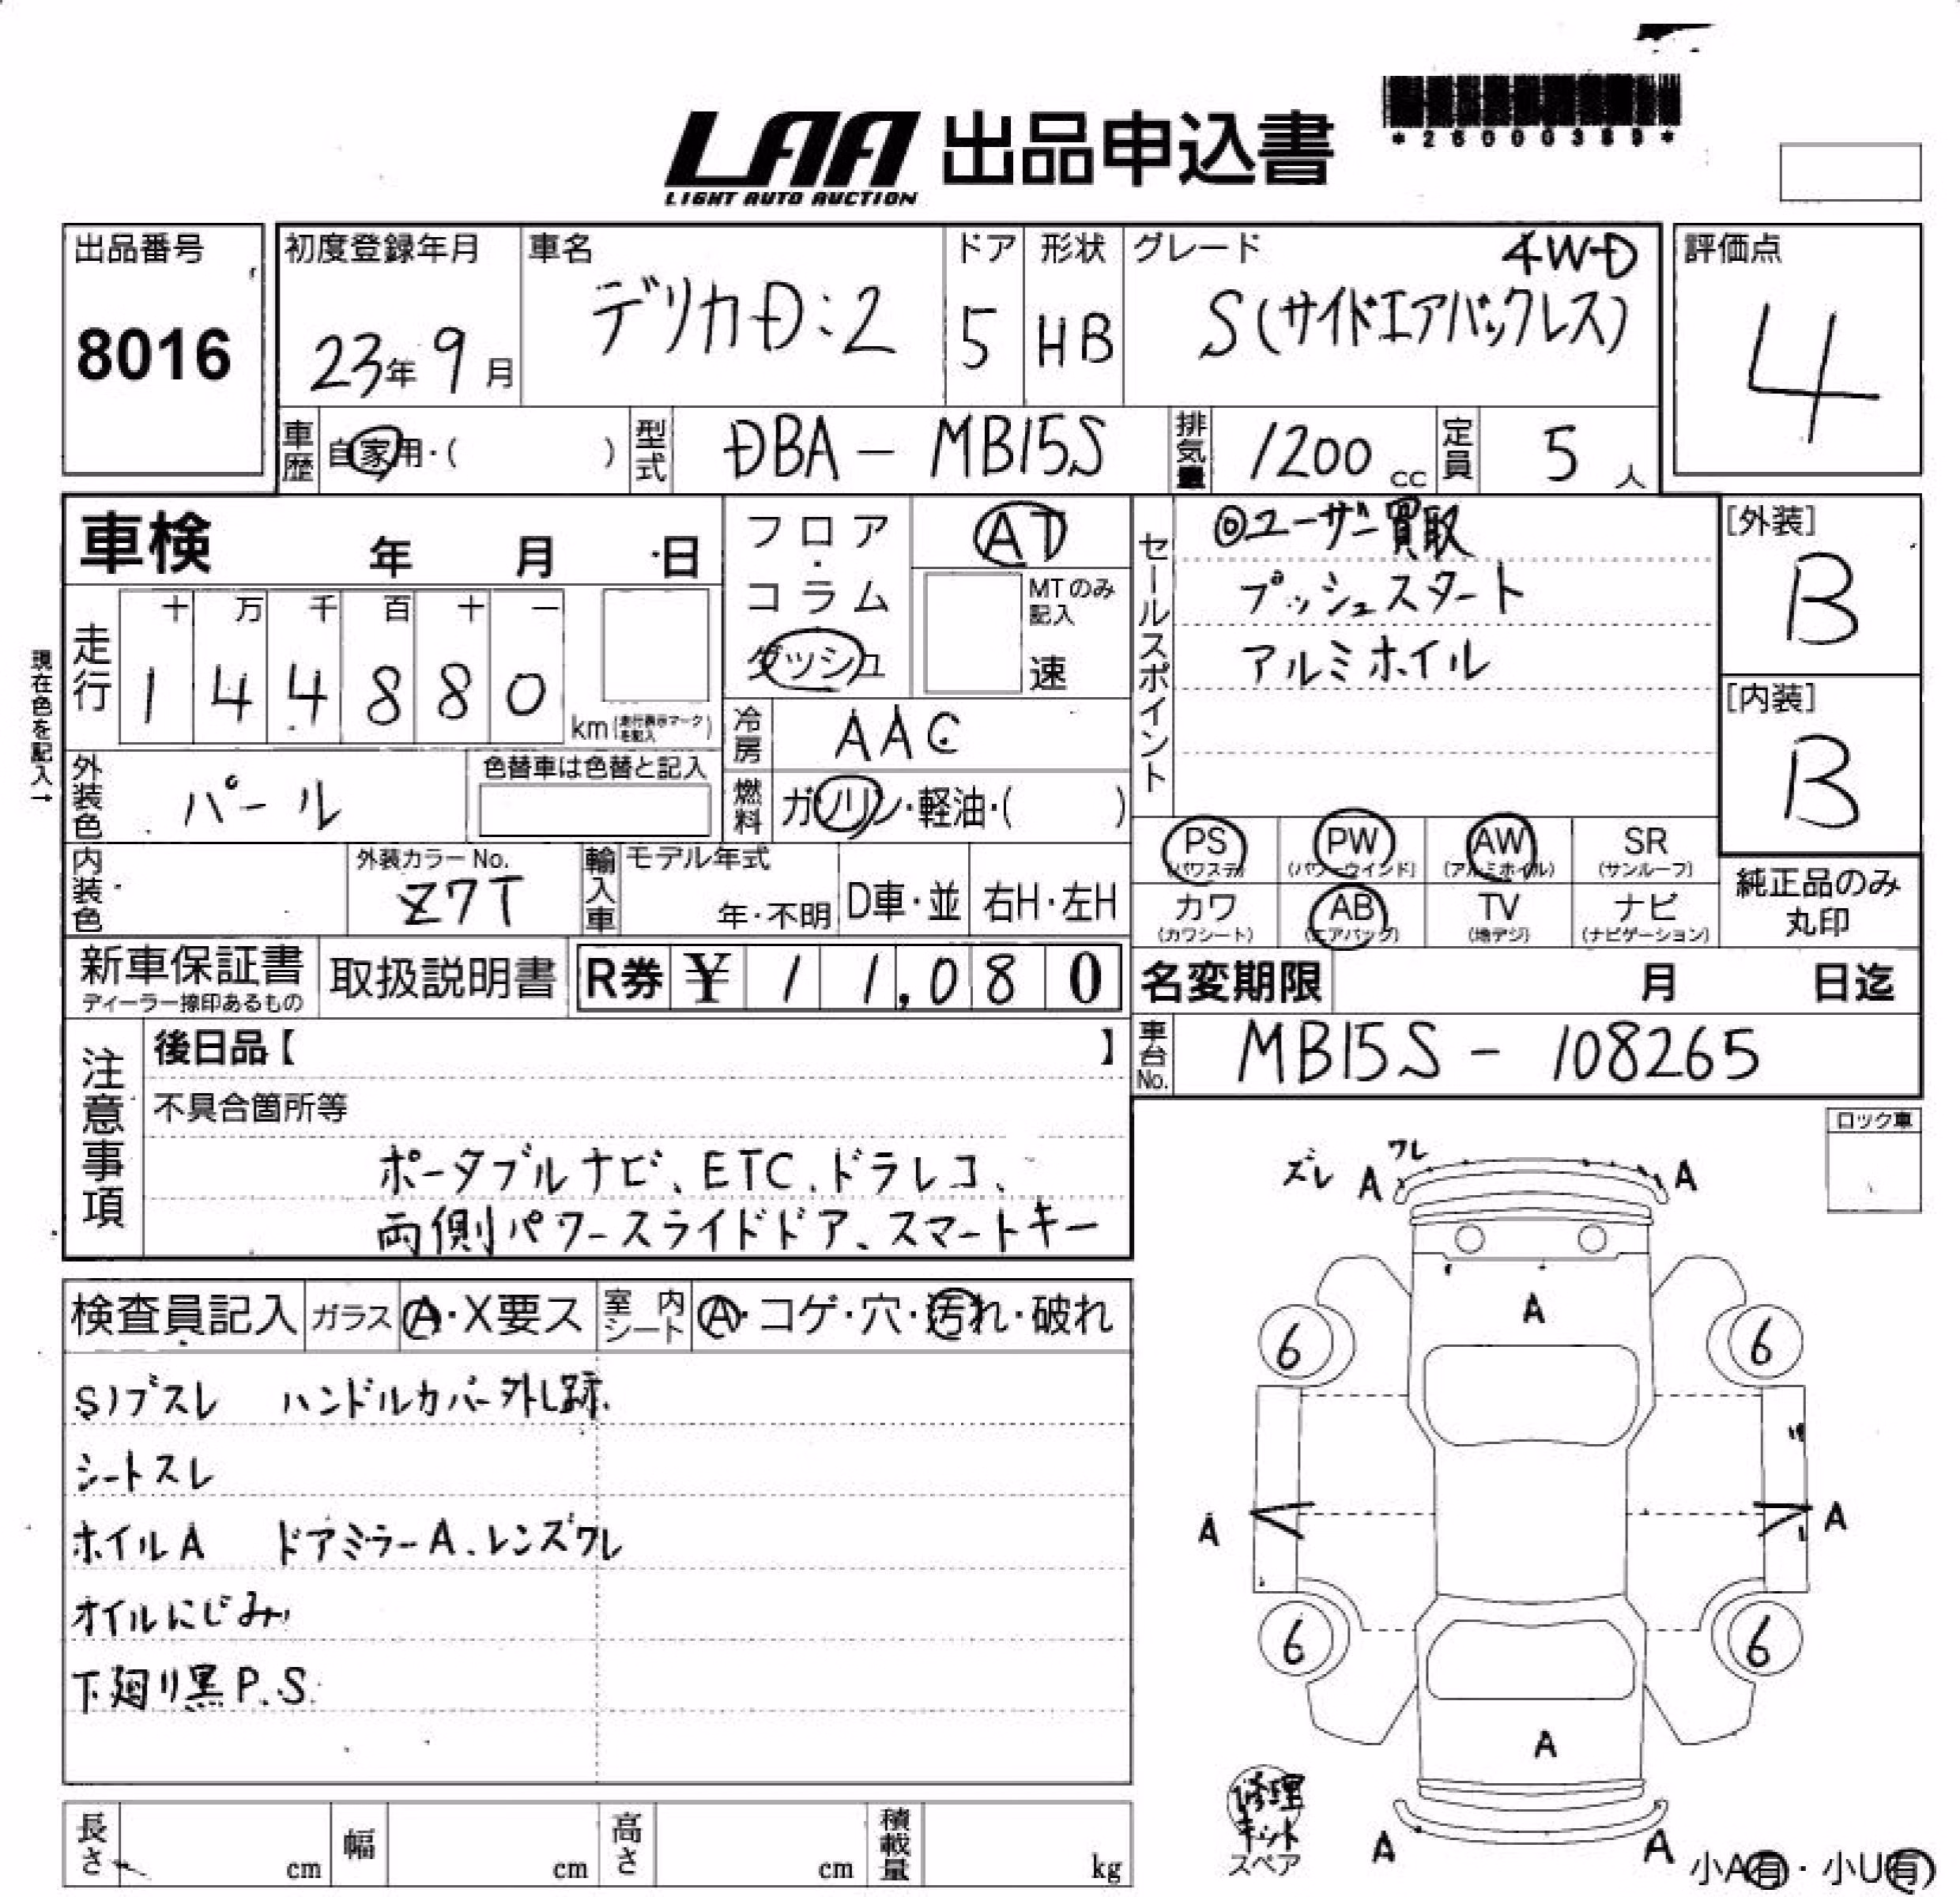 LAA 出品申込書
LIGHT AUTO AUCTION
*26000389*
出品番号
8016
初度登録年月
23年 9月
車名
デリカD:2
ドア
5
形状
HB
グレード 4WD
S(サイドエアバックレス)
評価点
4
車歴 自家用・( )
型式 DBA - MB15S
排気量 1200 cc
定員 5 人
車検 年 月 日
走行
十 万 千 百 十 一
1 4 4 8 8 0 km(走行表示マークを記入)
現在色を記入→
外装色 パール
色替車は色替と記入
内装色
外装カラーNo.
Z7T
輸入車 モデル年式
年・不明 D車・並 右H・左H
フロア・コラム
ダッシュ
AT
MTのみ記入
速
冷房 AAC
燃料 ガソリン・軽油・( )
セールスポイント
◎ユーザー買取
プッシュスタート
アルミホイル
[外装]
B
[内装]
B
PS (パワステ)
PW (パワーウインド)
AW (アルミホイル)
SR (サンルーフ)
カワ (カワシート)
AB (エアバッグ)
TV (地デジ)
ナビ (ナビゲーション)
純正品のみ
丸印
新車保証書
ディーラー捺印あるもの
取扱説明書
R券 ¥ 11,080
名変期限 月 日迄
車台No. MB15S - 108265
注意事項
後日品【 】
不具合箇所等
ポータブルナビ、ETC、ドラレコ、
両側パワースライドドア、スマートキー
ロック車
検査員記入 ガラス A・X要ス 室内シート A・コゲ・穴・汚れ・破れ
S)ノブスレ ハンドルカバー外し跡
シートスレ
ホイルA ドアミラーA.レンズワレ
オイルにじみ
下廻り黒P.S.
ズレ A ワレ A
A
6 6
A A
6 6
A
A A
修理
キット
スペア
小A有・小U有
長さ cm 幅 cm 高さ cm 積載量 kg